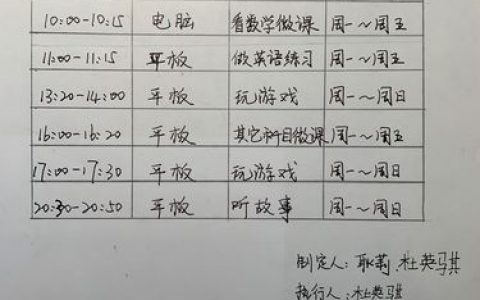 10:00-10:15 电脑 看数学微课 周一~周五
11:00-11:15 平板 做英语练习 周一~周五
13:20-14:00 平板 玩游戏 周一~周日
16:00-16:20 平板 其它科目微课 周一~周五
17:00-17:30 平板 玩游戏 周一~周日
20:30-20:50 平板 听故事 周一~周日
制定人: 耿莉.杜英骐
执行人: 杜英骐